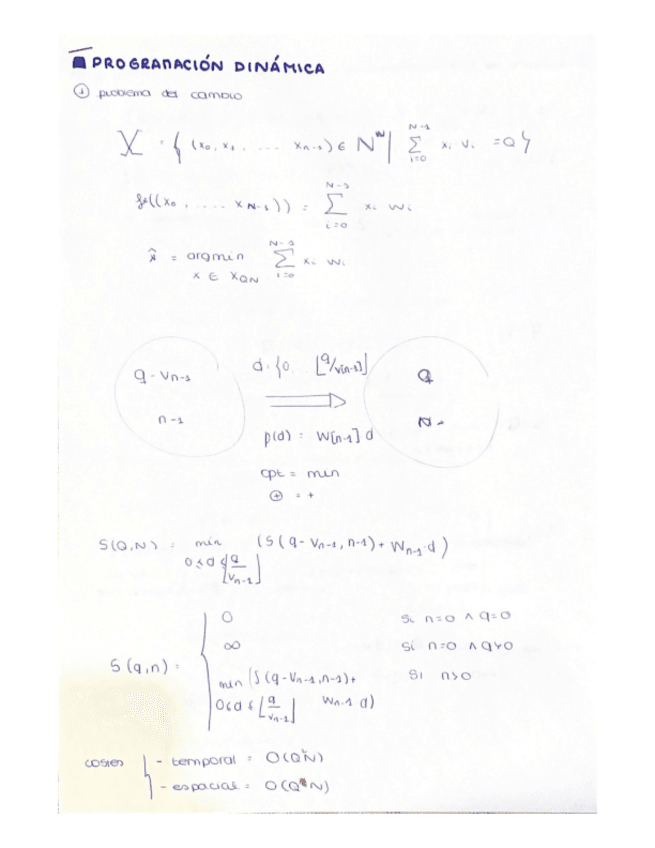 ■ PROGRAMACIÓN DINÁMICA
① problema del cambio
X = { (x₀, x₁, .... xₙ₋₁) ∈ Nᴺ | ∑_{i=0}^{N-1} xᵢ vᵢ = Q }
f((x₀, .... x_{N-1})) = ∑_{i=0}^{N-1} xᵢ wᵢ
x̂ = argmin_{x ∈ X_{QN}} ∑_{i=0}^{N-1} xᵢ wᵢ
q - vₙ₋₁
n-1
d · {0 .. ⌊q/v[n-1]⌋
⇒
p(d) = W[n-1] d
opt = min
⊕ = +
Q
N
S(Q,N) = min_{0≤d≤⌊q/vₙ₋₁⌋} (S(q - vₙ₋₁, n-1) + wₙ₋₁·d)
S(q,n) = {
0 si n=0 ∧ q=0
∞ si n=0 ∧ q>0
min_{0≤d≤⌊q/vₙ₋₁⌋} (S(q-vₙ₋₁, n-1) + wₙ₋₁ d) si n>0
costes { - temporal = O(Q²N)
- espacial = O(Q N)